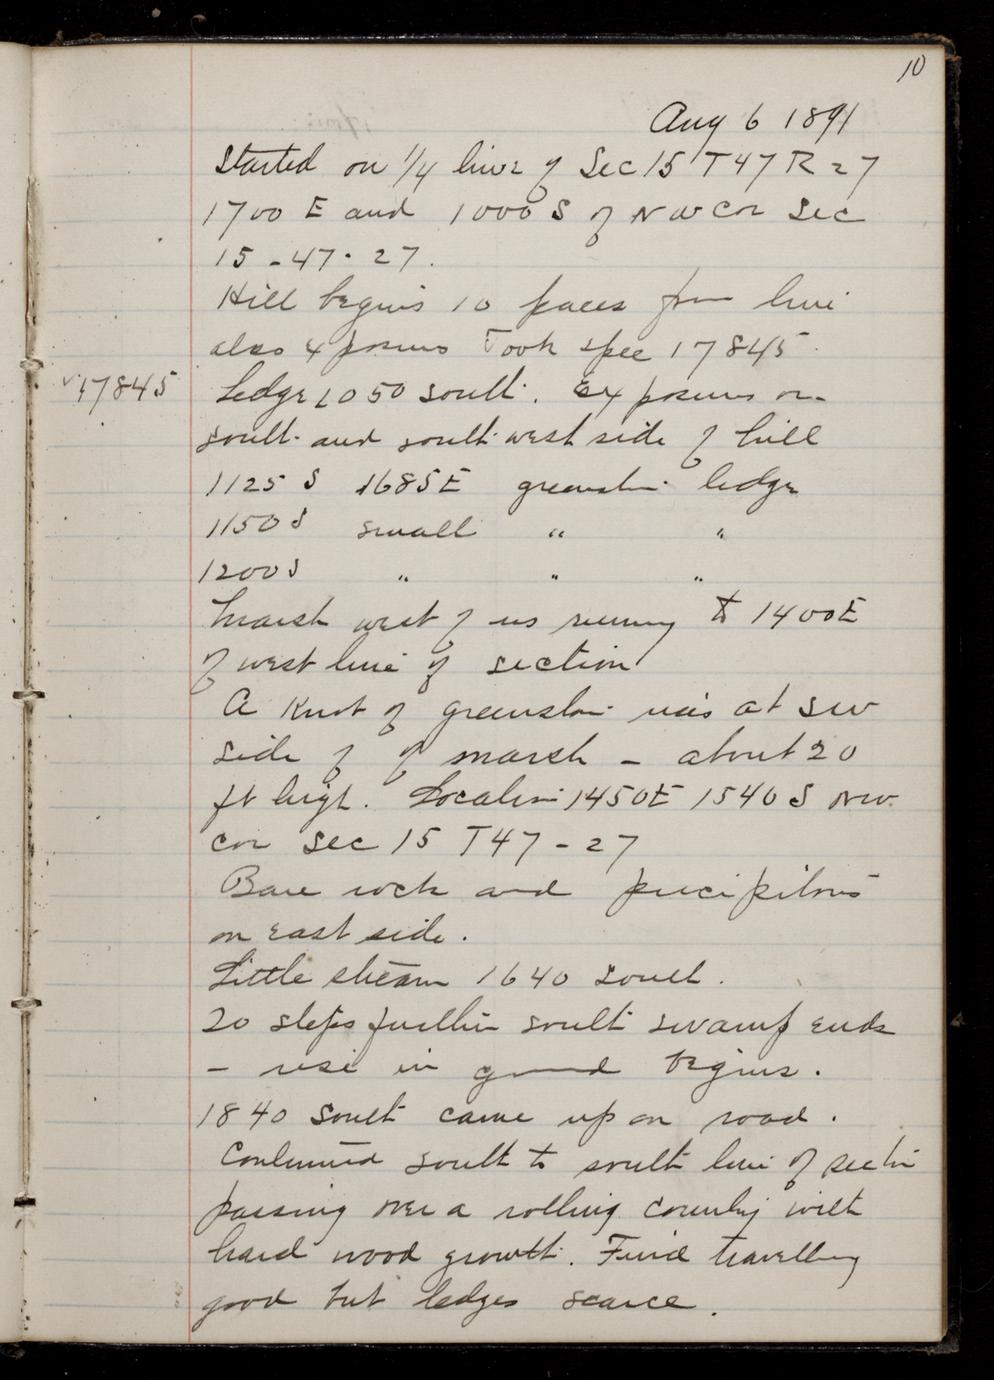 10
Aug 6 1891
Started on 1/4 line of Sec 15 T47 R27
1700 E and 1000 S of N W Cor Sec
15 - 47 - 27.
Hill begins 10 paces from line
also exposures Took spec 17845.
17845 Ledge 1050 South. Exposures on
south and southwest side of hill
1125 S 1685 E greenstone ledge
1150 S small " "
1200 S " " "
Marsh west of us running to 1400 E
of west line of section
A Knot of greenstone rises at SW
side of of marsh - about 20
ft high. Location 1450 E 1540 S NW.
cor Sec 15 T47 - 27
Bare rock and precipitous
on east side.
Little stream 1640 South.
20 steps further south swamp ends
- rise in ground begins.
1840 South came up on road.
Continued south to south line of section
passing over a rolling country with
hard wood growth. Find travelling
good but ledges scarce.